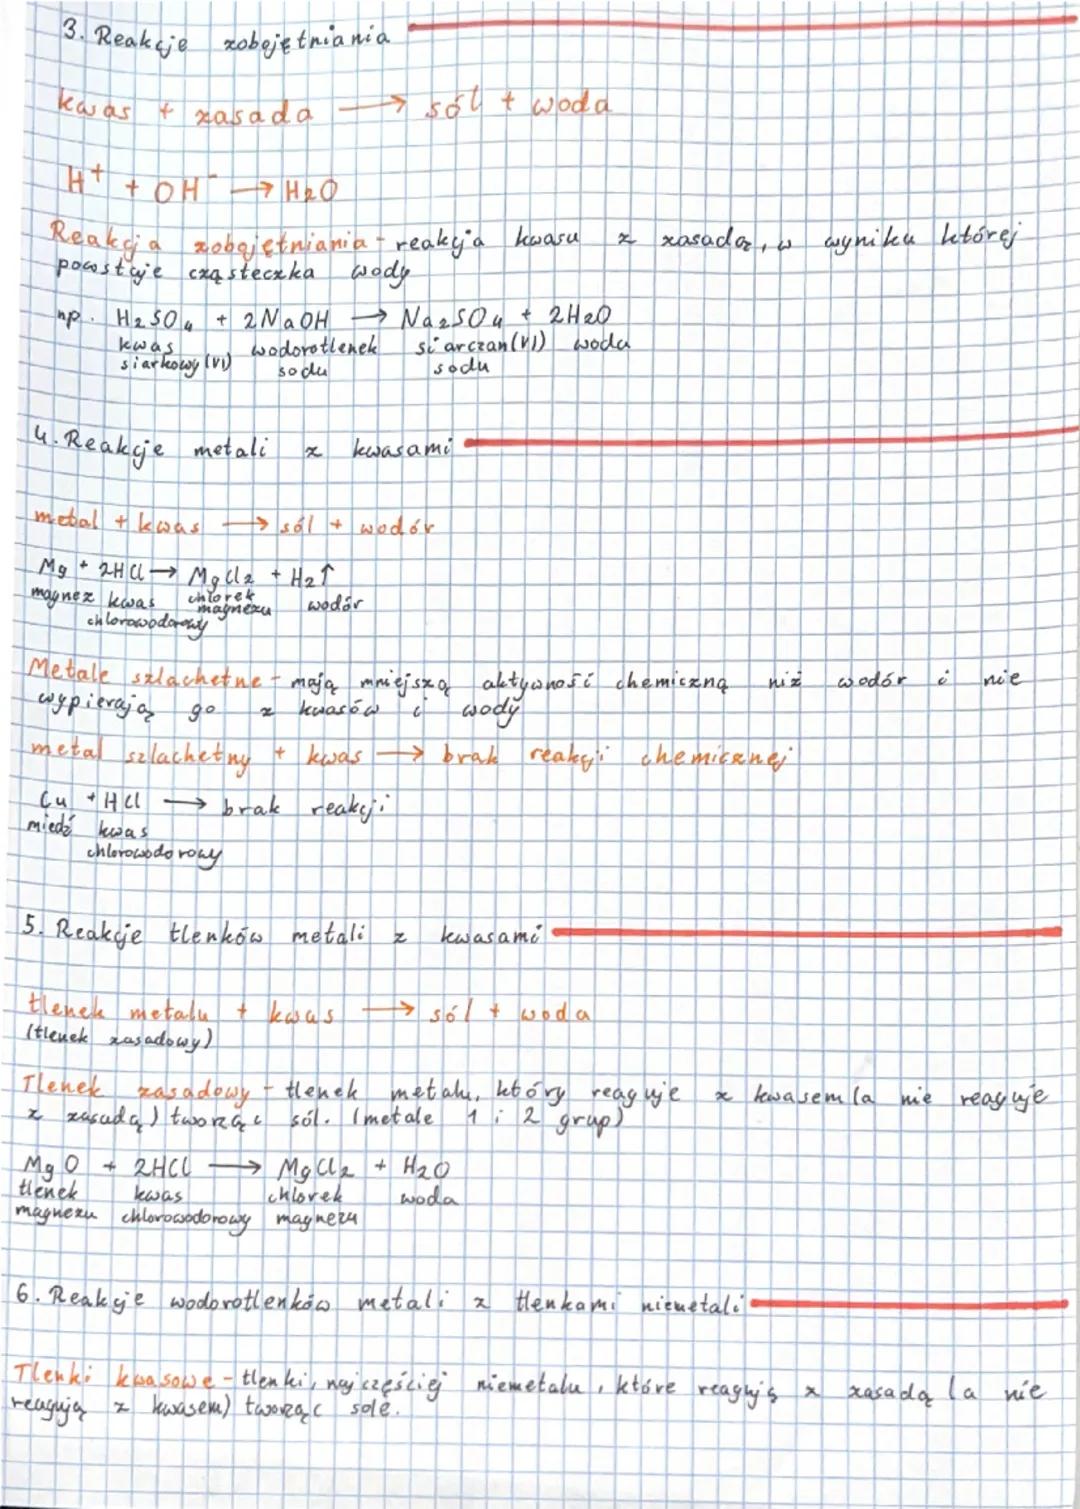 3. Reakcje zobojętniania
kwas + zasada → sól + woda
H⁺ + OH⁻ → H₂O
Reakcja zobojętniania - reakcja kwasu z zasadą, w wyniku której
powstaje cząsteczka wody
np. H₂SO₄ + 2NaOH → Na₂SO₄ + 2H₂O
kwas wodorotlenek siarczan(VI) woda
siarkowy(VI) sodu sodu
4. Reakcje metali z kwasami
metal + kwas → sól + wodór
Mg + 2HCl → MgCl₂ + H₂↑
magnez kwas chlorek wodór
chlorowodorowy magnezu
Metale szlachetne - mają mniejszą aktywność chemiczną niż wodór i nie
wypierają go z kwasów i wody
metal szlachetny + kwas → brak reakcji chemicznej
Cu + HCl → brak reakcji
miedź kwas
chlorowodorowy
5. Reakcje tlenków metali z kwasami
tlenek metalu + kwas → sól + woda
(tlenek zasadowy)
Tlenek zasadowy - tlenek metalu, który reaguje z kwasem (a nie reaguje
z zasadą) tworząc sól. (metale 1 i 2 grup)
MgO + 2HCl → MgCl₂ + H₂O
tlenek kwas chlorek woda
magnezu chlorowodorowy magnezu
6. Reakcje wodorotlenków metali z tlenkami niemetali
Tlenki kwasowe - tlenki, najczęściej niemetalu, które reagują z zasadą (a nie
reagują z kwasem) tworząc sole.